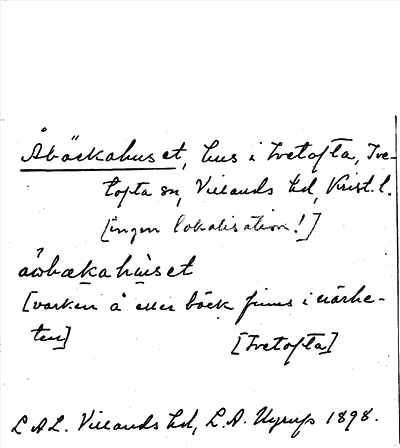 Åbäckahuset, hus i Ivetofta, Ive-
tofta sn, Villands hd, Krist. l.
[ingen lokalisation!]
åобækahùset
[varken å eller bäck finns i närhe-
ten] [Ivetofta]
L A L. Villands hd, L. A. Nyrup 1898.